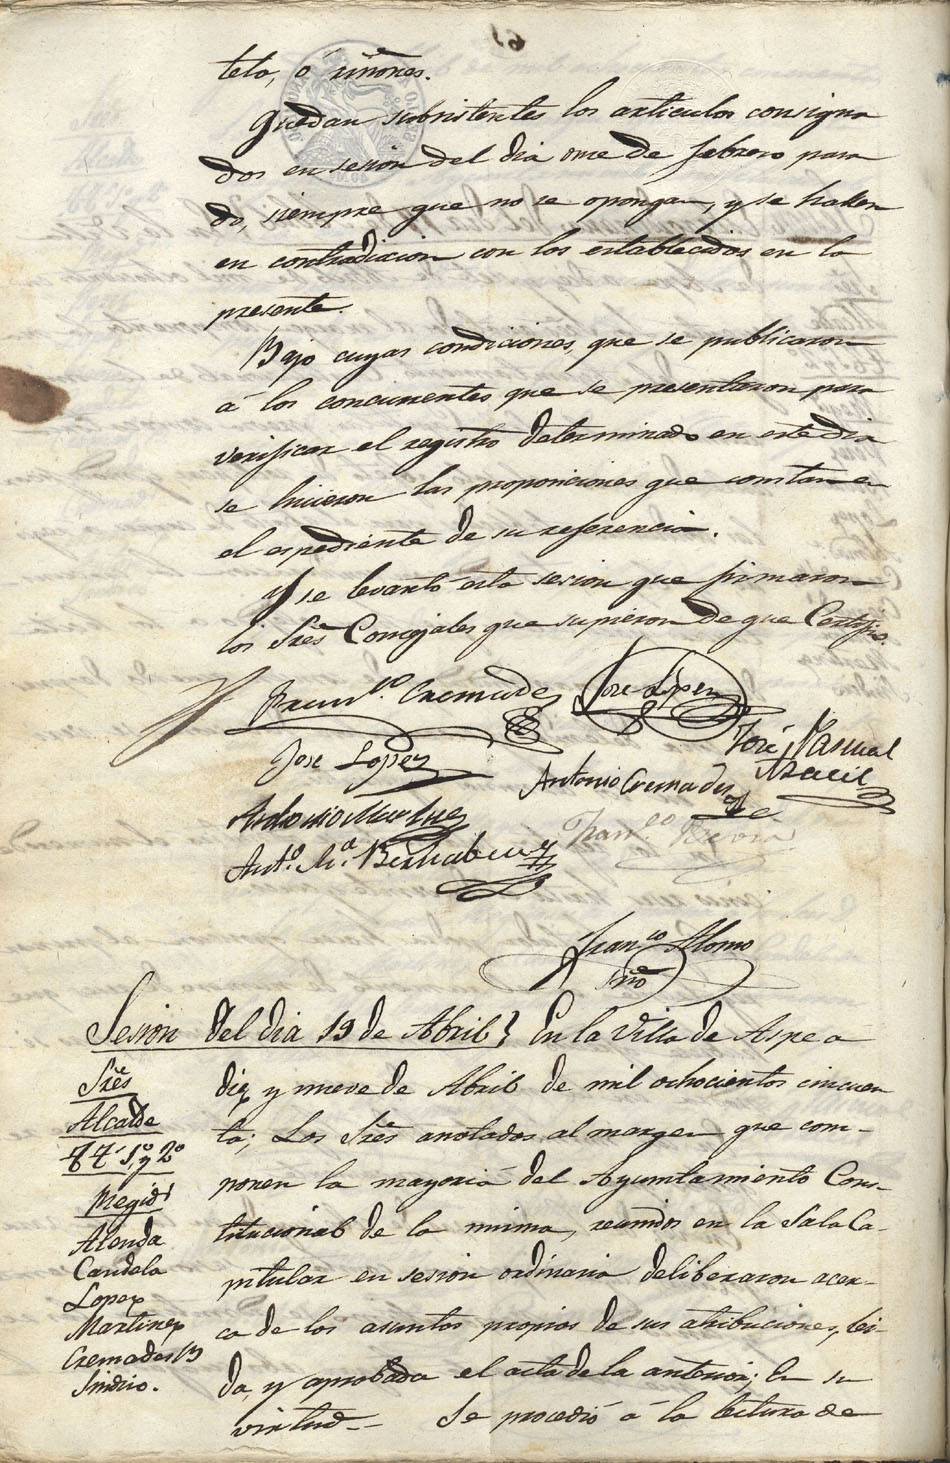 telo, ó riñones.
Quedan subsistentes los articulos consigna
dos en sesion del dia once de febrero pasa
do, siempre que no se opongan, y se hallen
en contradicion con los establecidos en la
presente.
Bajo cuyas condiciones, que se publicaron
á los concurrentes que se presentaron para
verificar el registro determinado en este dia
se hicieron las proposiciones que constan en
el espediente de su referencia.
Y se levantó esta sesion que firmaron
los Sres Concejales que supieron de que Certifico.
Cremades Jose Lopez
José Pascual
Jose Lopez
Antonio Cremades
Antonio Martinez
Anto. Ma. Bernabeu
Franco.
Franco Alonso
Srio
Sesion del dia 19 de Abril} En la Villa de Aspe a
Sres
Alcalde
Tts 1o y 2o
Regids
Alenda
Candela
Lopez
Martinez
Cremades B
Sindico.
diez y nueve de Abril de mil ochocientos cincuen
ta; Los Sres anotados al margen que com-
ponen la mayoria del Ayuntamiento Cons-
titucional de la misma, reunidos en la Sala Ca-
pitular en sesion ordinaria deliberaron acer-
ca de los asuntos propios de sus atribuciones, lei-
da, y aprobada el acta de la anterior; En su
virtud— Se procedió á la lectura de